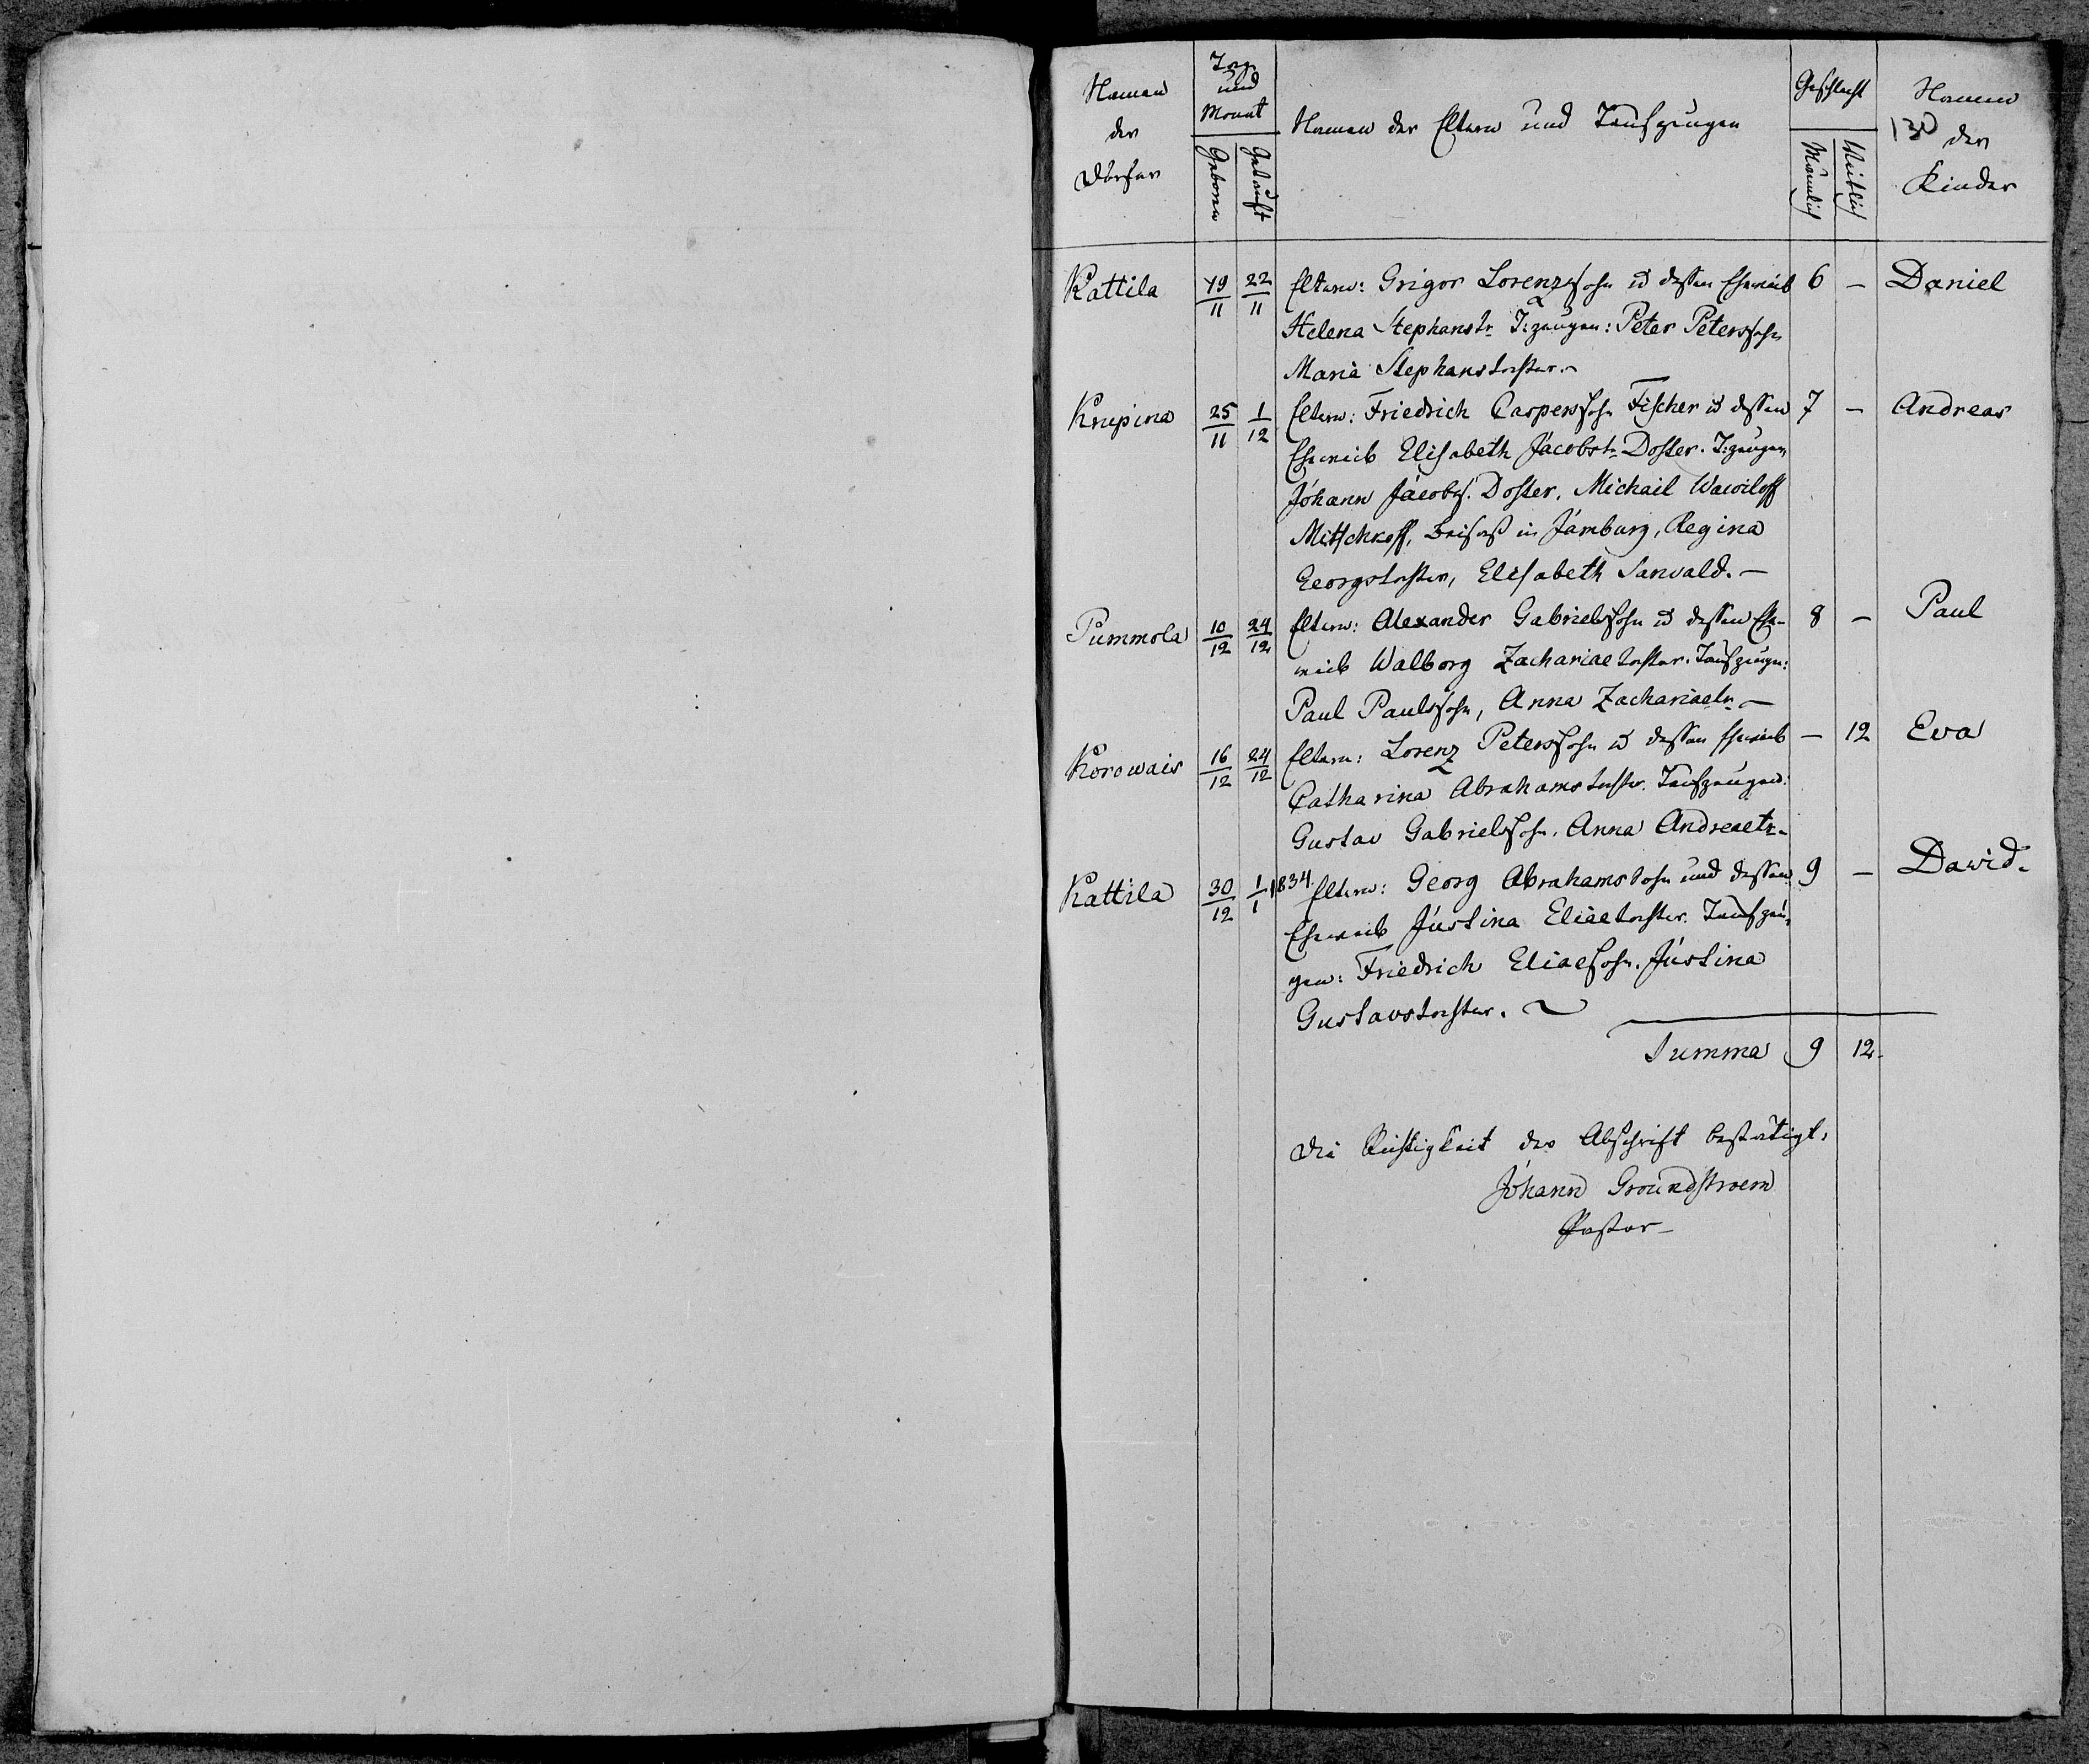 Namen der Dörfer
Tag und Monat
Geboren
Getauft
Namen der Eltern und Taufzeugen
Geschlecht
Männlich
Weiblich
Namen der Kinder
130
Kattila 19/11 22/11 Eltern: Grigor Lorenzsohn u dessen Eheweib 6 – Daniel
Helena Stephanstr. T:zeugen: Peter Peterssohn
Maria Stephanstochter. –
Krupina 25/11 1/12 Eltern: Friedrich Caspersohn Fischer u dessen 7 – Andreas
Eheweib Elisabeth Jacobstr. Doster. T:zeugen
Johann Jacobs. Doster, Michail Wawiloff
Mitschkoff, Beisaß in Jamburg, Regina
Georgstochter, Elisabeth Sanwald. –
Pummola 10/12 24/12 Eltern: Alexander Gabrielssohn u dessen Ehe- 8 – Paul
weib Walborg Zachariaetochter. Taufzeugen:
Paul Paulssohn, Anna Zachariaetr. –
Korowais 16/12 24/12 Eltern: Lorenz Peterssohn u dessen Eheweib – 12 Eva
Catharina Abrahamstochter. Taufzeugen:
Gustav Gabrielssohn. Anna Andreaetr. –
Kattila 30/12 1/1 1834. Eltern: Georg Abrahamssohn und dessen 9 – David.
Eheweib Justina Eliaetochter. Taufzeu-
gen: Friedrich Eliaesohn. Justina
Gustavstochter. ~
Summa 9 12.
Die Richtigkeit der Abschrift bestätigt,
Johann Groundstroem
Pastor –